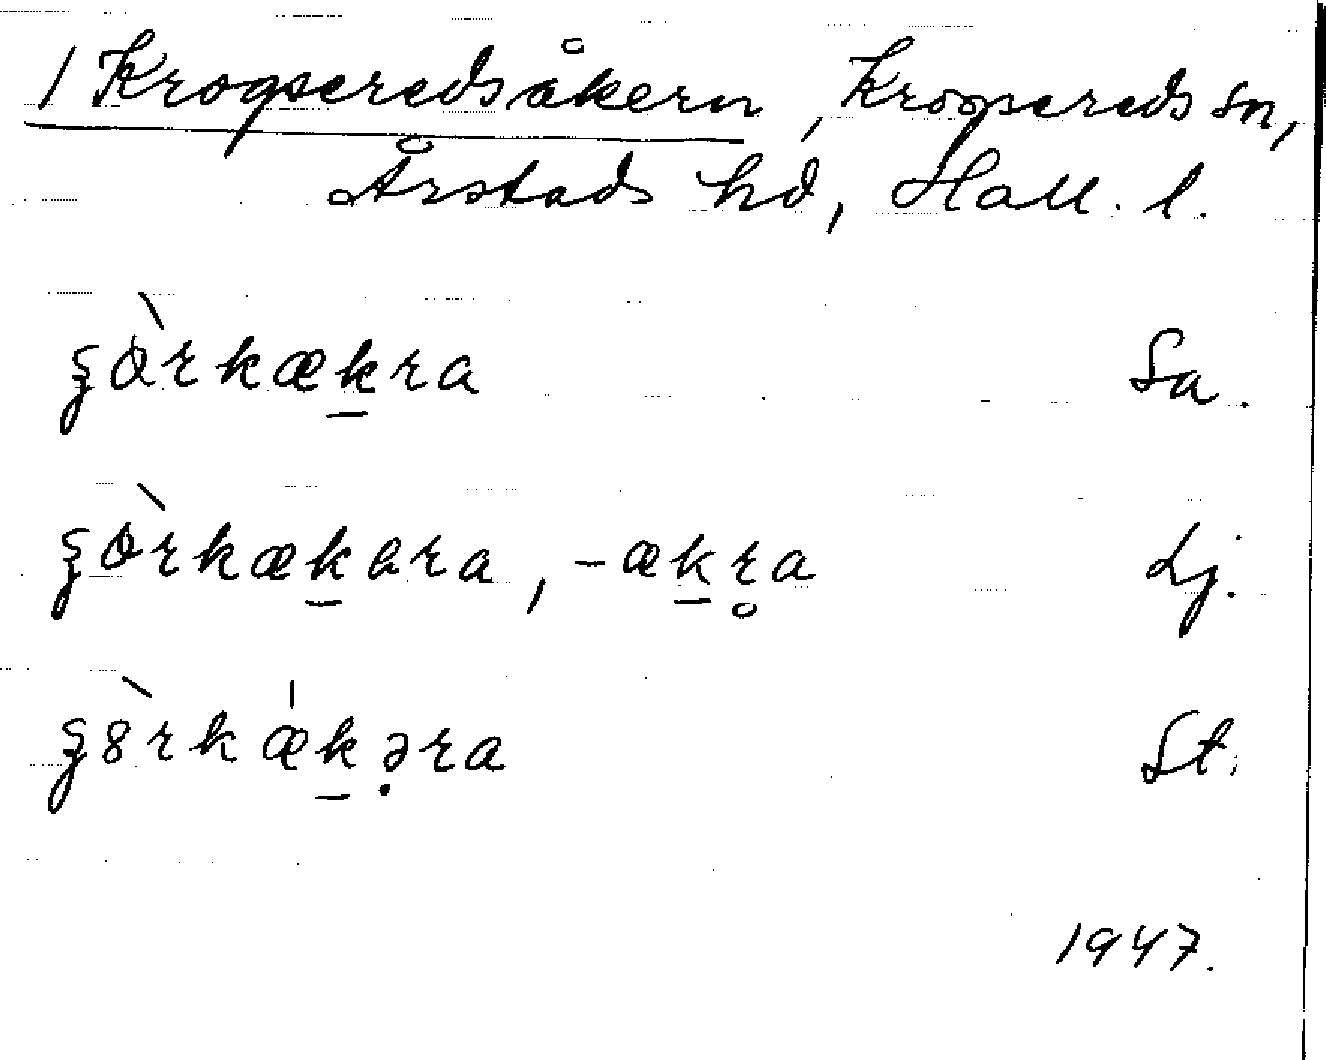 1 Krogseredsåkern, Krogsereds sn,
Årstads hd, Hall. l.
ʒòrkækra Sa.
ʒòrkækara, -ækr̥a Lj.
ʒ8̀rkǽkə̣ra St.
1947.